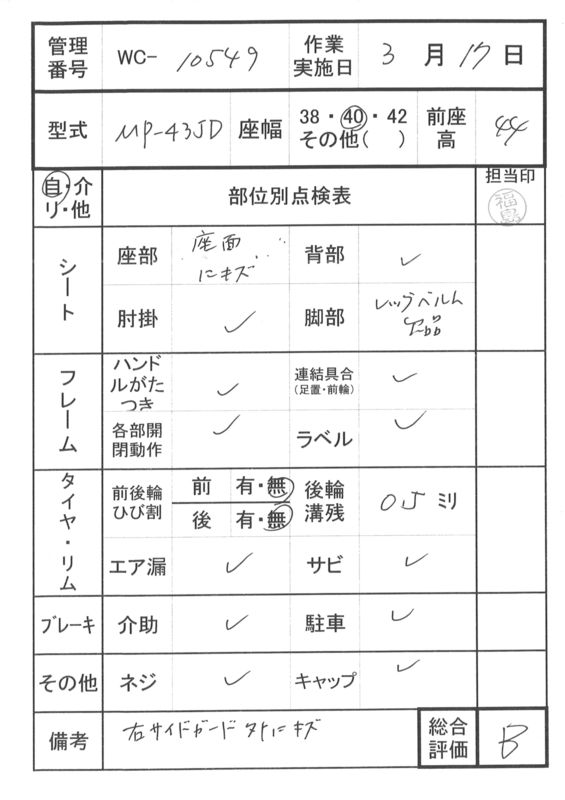 管理番号 WC- 10549 作業実施日 3 月 17 日
型式 MP-43JD 座幅 38・40・42 その他( ) 前座高 44
自・介 リ・他 部位別点検表 担当印 福島
シート
座部 座面にキズ 背部 ✓
肘掛 ✓ 脚部 レッグベルト欠品
フレーム
ハンドルがたつき ✓ 連結具合 (足置・前輪) ✓
各部開閉動作 ✓ ラベル ✓
タイヤ・リム
前後輪ひび割 前 有・無 後輪溝残 05 ミリ
後 有・無
エア漏 ✓ サビ ✓
ブレーキ 介助 ✓ 駐車 ✓
その他 ネジ ✓ キャップ ✓
備考 右サイドガード外にキズ 総合評価 B